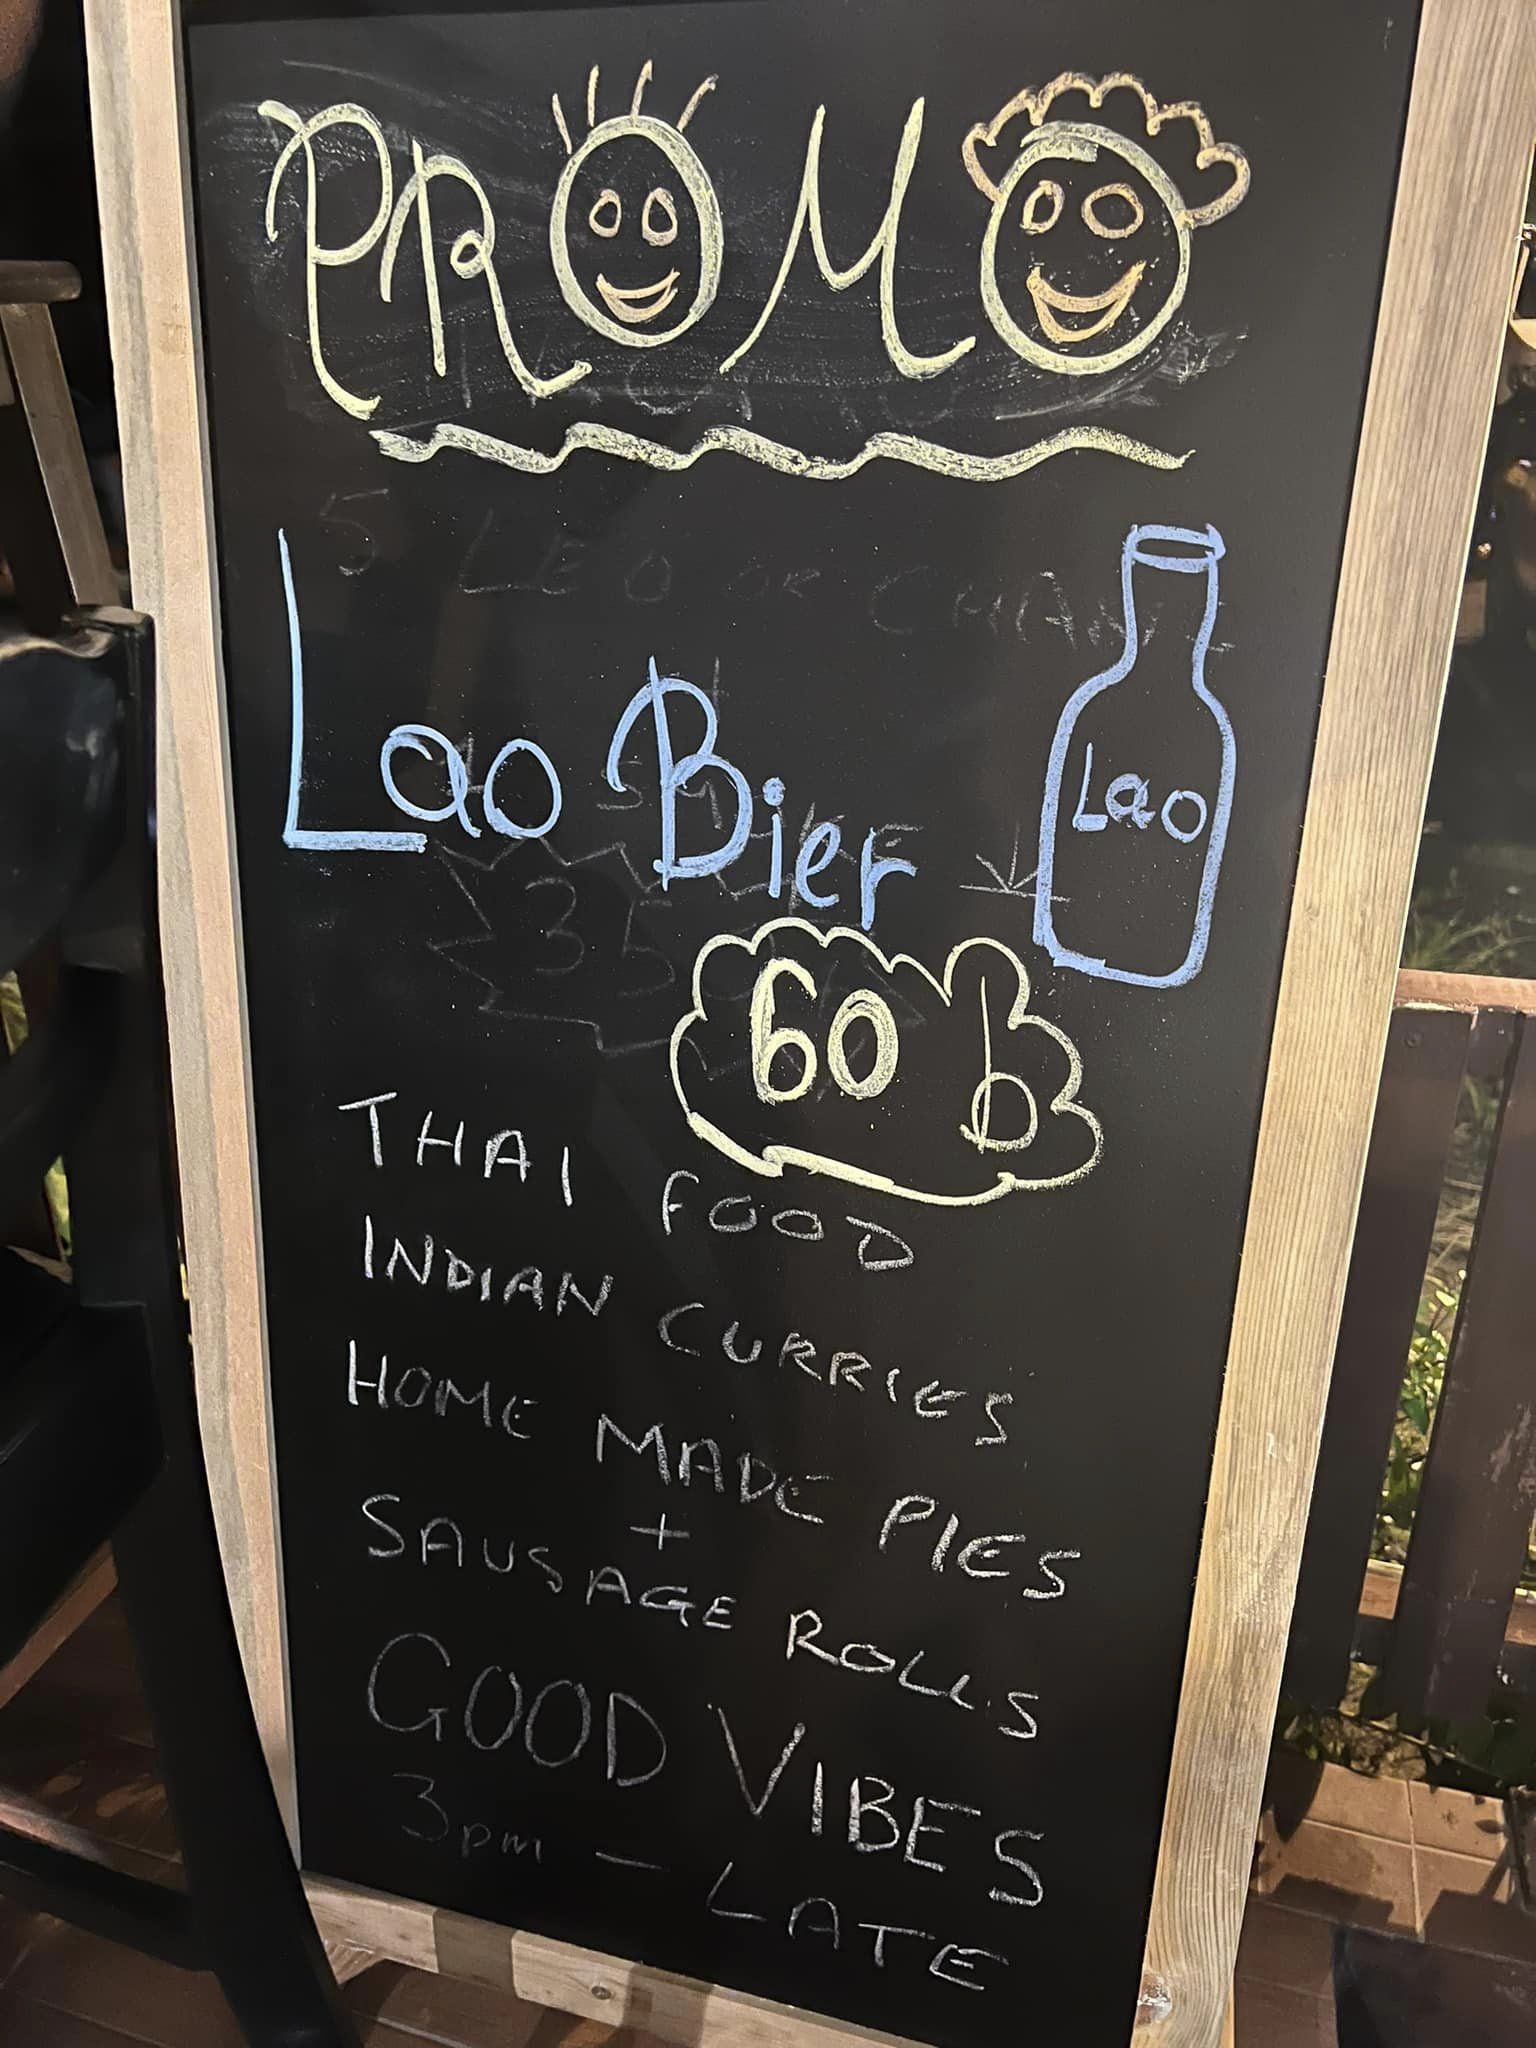 PROMO
5 LEO OR CHANG
Lao Bier
Lao
60 b
THAI FOOD
INDIAN CURRIES
HOME MADE PIES
+
SAUSAGE ROLLS
GOOD VIBES
3pm - LATE